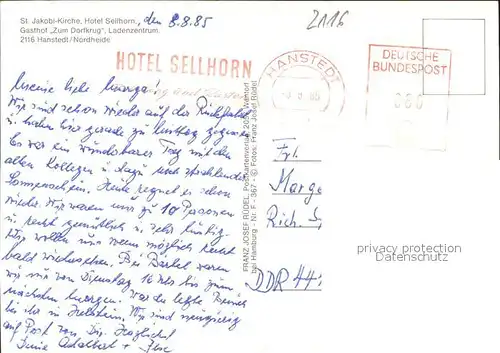 St. Jakobi-Kirche, Hotel Sellhorn,
Gasthof „Zum Dorfkrug", Ladenzentrum.
2116 Hanstedt/Nordheide
den 8.8.85
2116
HOTEL SELLHORN
HANSTEDT
DEUTSCHE
BUNDESPOST
Meine liebe Marga!
Wir sind schon wieder auf der Rückfahrt
u. haben hier gerade zu Mittag gegessen
Es war ein wunderbarer Tag mit den
alten Kollegen u. dazu noch strahlender
Sonnenschein. Heute regnet es schon
wieder. Wir waren nur zu 10 Personen
u. recht gemütlich u. sehr lustig.
Wir wollen uns wenn möglich recht
bald wiedersehen. Bei Bärbel waren
wir nur von Dienstag 16 Uhr bis zum
nächsten Morgen. War der letzte
bei ihr in Holstein. Wir sind neugierig
auf Post von Dir. Herzlichst
Deine Adalbert + Ilse
FRANZ JOSEF RÜDEL, Postkartenverlag, 2000 Wenttorf
bei Hamburg - Nr. F - 367 - © Fotos: Franz Josef Rüdel
Frl.
Marga
Rich. S
DDR 44
privacy protection
Datenschutz